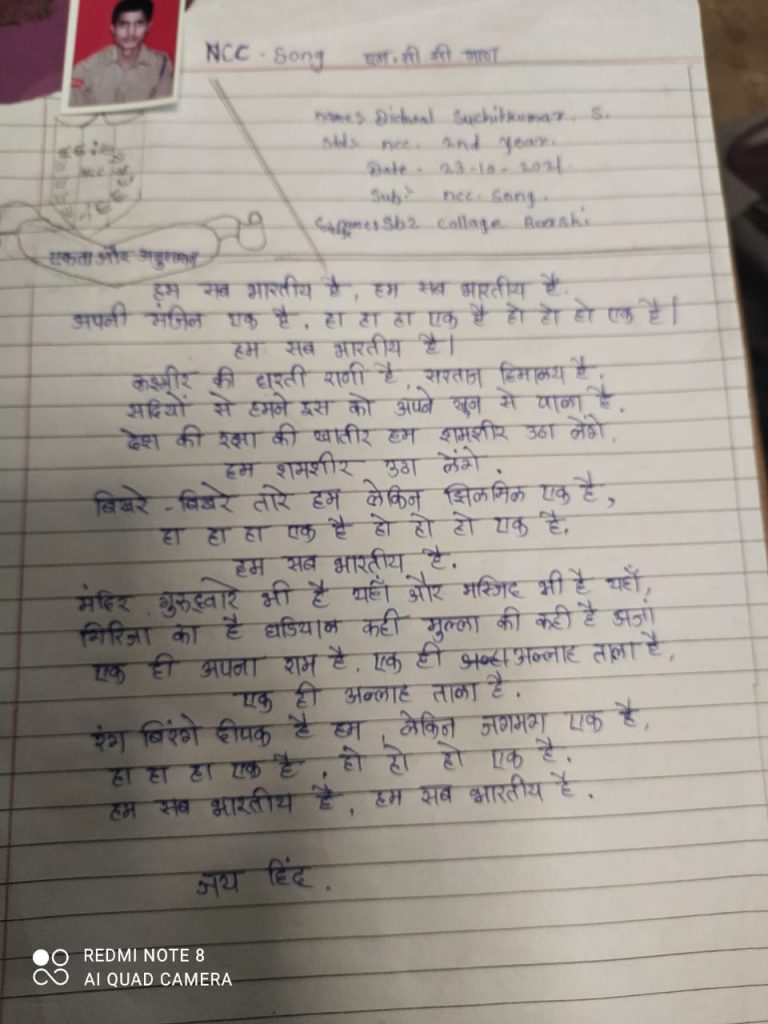 NCC - Song एन.सी.सी गाण
Name:s Dicheal Suchitkumar. S.
Std:s ncc. 2nd year.
Date - 23-10-2021.
Sub:- ncc. Song.
SB2 collage Barshi.
एकता और अनुशासन
हम सब भारतीय है, हम सब भारतीय है.
अपनी मंजिल एक है, हा हा हा एक है हो हो हो एक है|
हम सब भारतीय है|
कश्मीर की धरती राणी है, सरताज हिमालय है.
सदियों से हमने इस को अपने खून से पाला है.
देश की रक्षा की खातीर हम शमशीर उठा लेंगे,
हम शमशीर उठा लेंगे.
बिखरे - बिखरे तारे हम लेकिन झिलमिल एक है,
हा हा हा एक है हो हो हो एक है.
हम सब भारतीय है.
मंदिर गुरुद्वारे भी है यहाँ और मस्जिद भी है यहाँ,
गिरिजा का है घडियाल कही मुल्ला की कही है अजां
एक ही अपना राम है, एक ही अल्लाह ताला है,
एक ही अल्लाह ताला है.
रंग बिरंगे दीपक है हम, लेकिन जगमग एक है,
हा हा हा एक है, हो हो हो एक है.
हम सब भारतीय है, हम सब भारतीय है.
जय हिंद.
REDMI NOTE 8
AI QUAD CAMERA